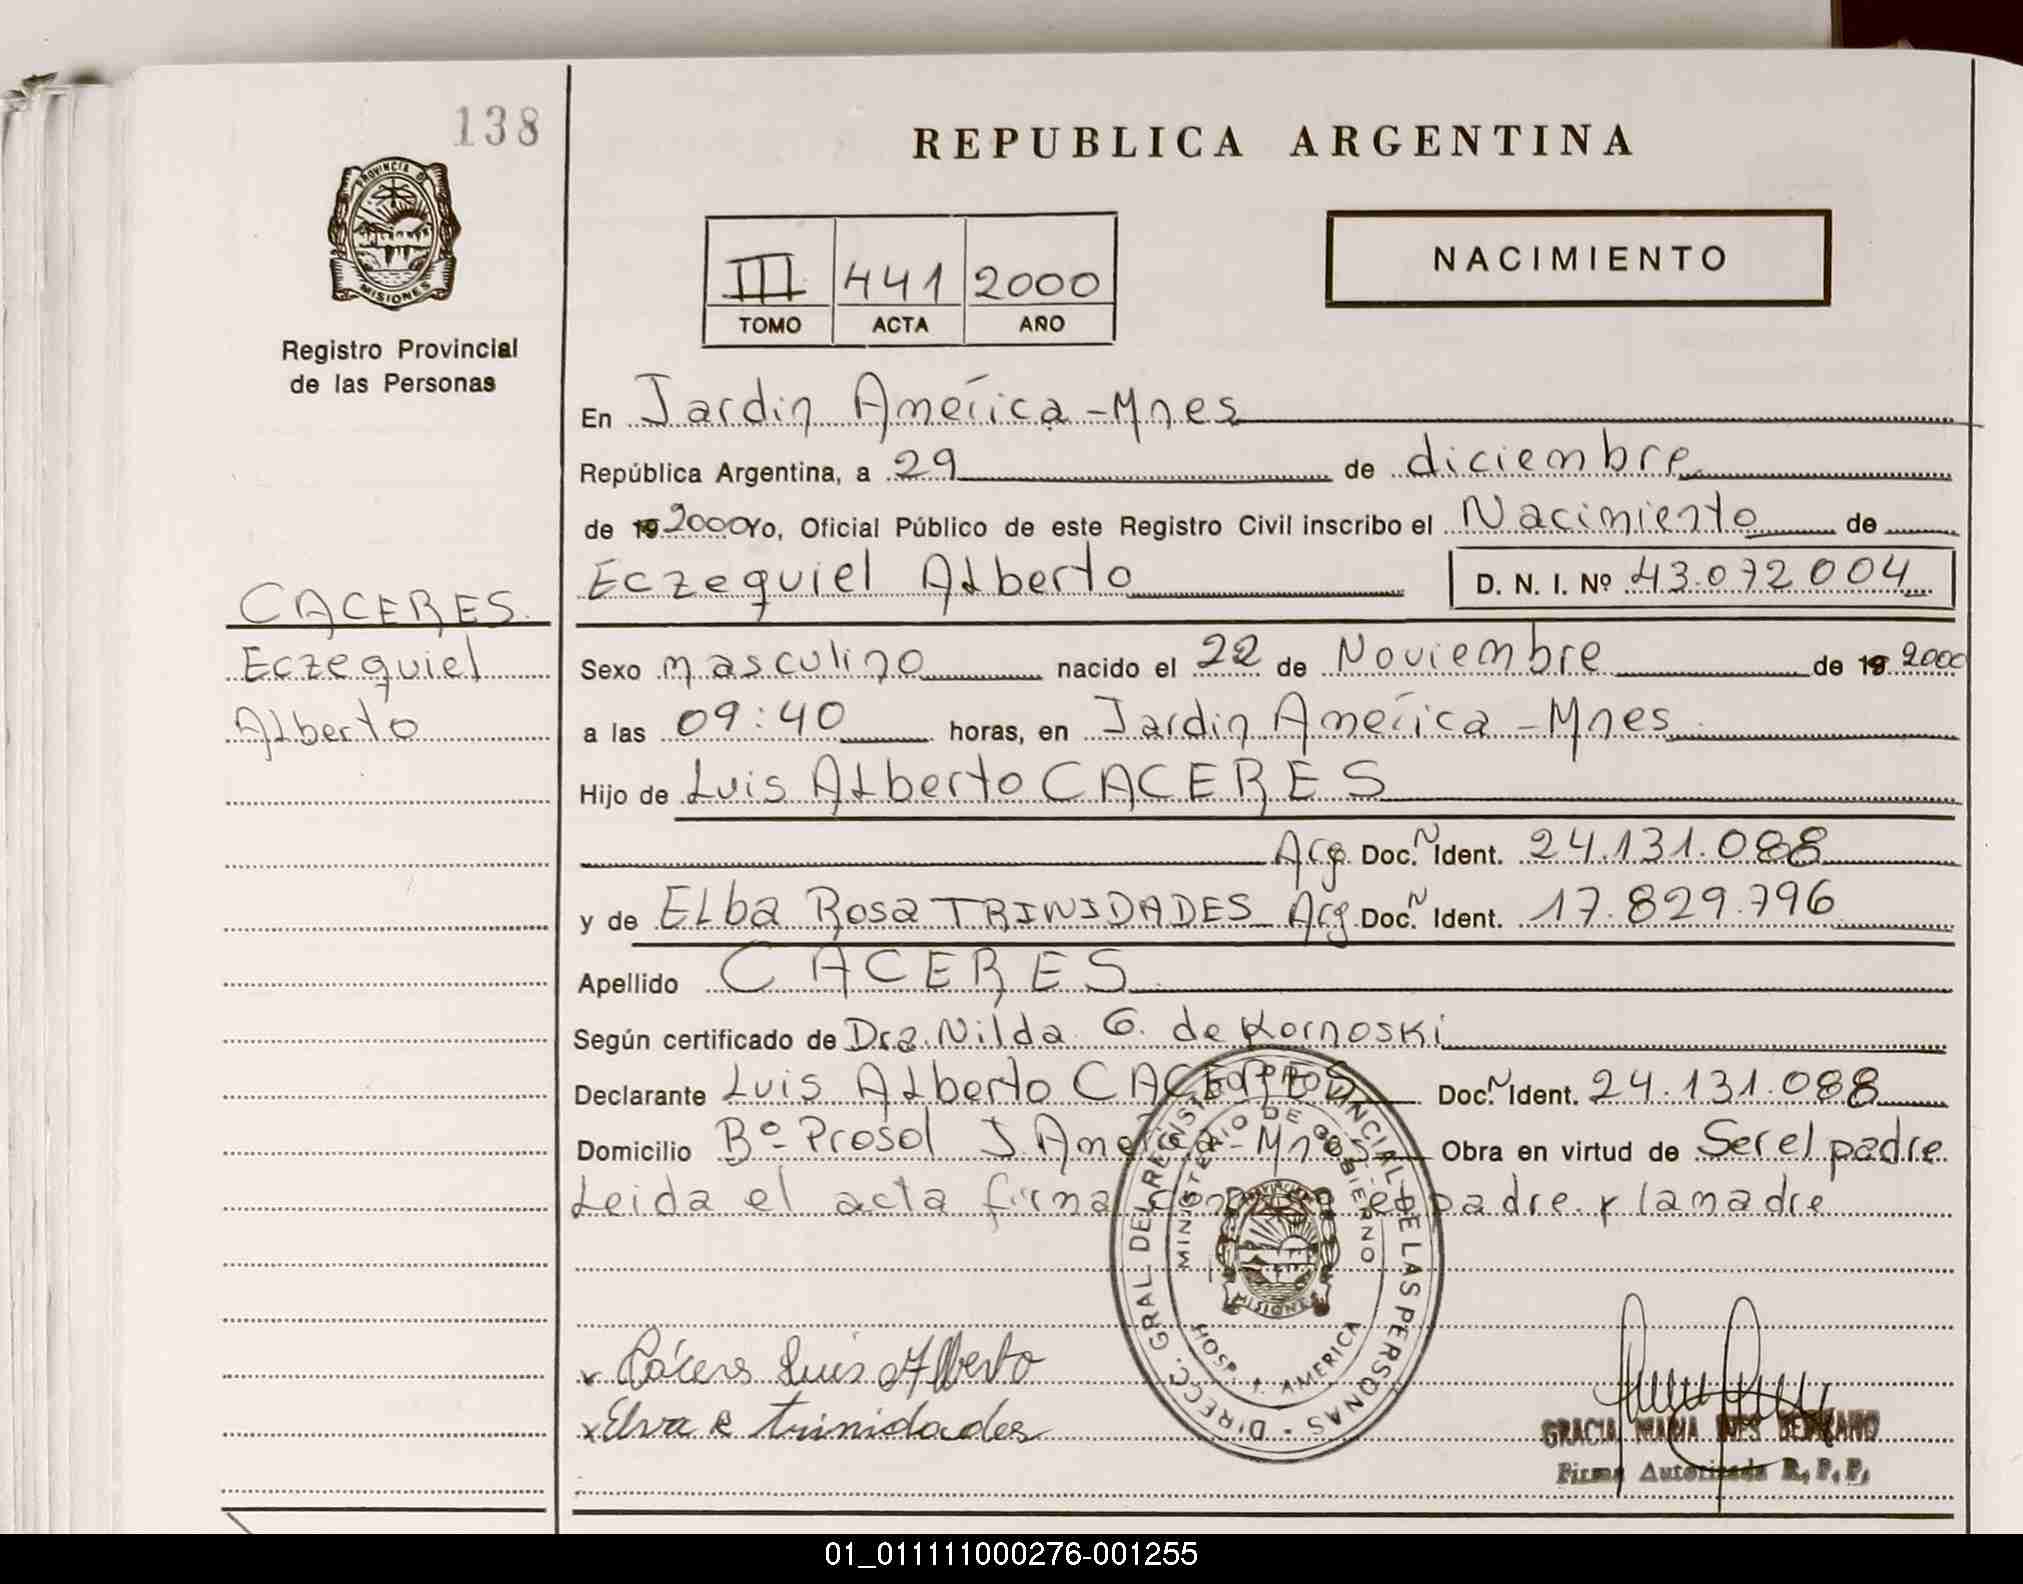 138
PROVINCIA DE
MISIONES
Registro Provincial
de las Personas
CACERES
Eczequiel
Alberto
REPUBLICA ARGENTINA
III 441 2000
TOMO ACTA AÑO
NACIMIENTO
En Jardin América - Mnes
República Argentina, a 29 de diciembre
de 19 2000 Yo, Oficial Público de este Registro Civil inscribo el Nacimiento de
Eczequiel Alberto D. N. I. Nº 43.072004
Sexo masculino nacido el 22 de Noviembre de 19 2000
a las 09:40 horas, en Jardin América - Mnes
Hijo de Luis Alberto CACERES
Arg. Doc. N Ident. 24.131.088
y de Elba Rosa TRINIDADES Arg. Doc. N Ident. 17.829.796
Apellido CACERES
Según certificado de Dra. Nilda G. de Kornoski
Declarante Luis Alberto CACERES Doc. N Ident. 24.131.088
Domicilio Bº Prosol J. América - Mnes Obra en virtud de Ser el padre
Leida el acta firma el padre y la madre
DIRECC. GRAL. DEL REGISTRO PROVINCIAL DE LAS PERSONAS -
MINISTERIO DE GOBIERNO
MISIONES
HOSP. J. AMERICA
x Cáceres Luis Alberto
x Elva R trinidades
GRACIA MARIA INES
Firma Autorizada R. P. P.
01_011111000276-001255